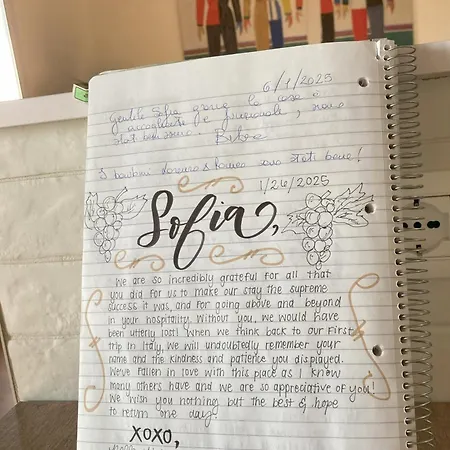 6/1/2025
Gentile Sofia grazie la casa è
accogliente e funzionale, siamo
stati benissimo.
I bambini Lorenzo e Romeo sono stati bene!
1/26/2025
Sofia,
We are so incredibly grateful for all that
you did for us to make our stay the supreme
success it was, and for going above and beyond
in your hospitality. Without you, we would have
been utterly lost! When we think back to our first
trip in Italy, we will undoubtedly remember your
name and the kindness and patience you displayed.
We've fallen in love with this place as I know
many others have and we are so appreciative of you!
We wish you nothing but the best & hope
to return one day.
XOXO,